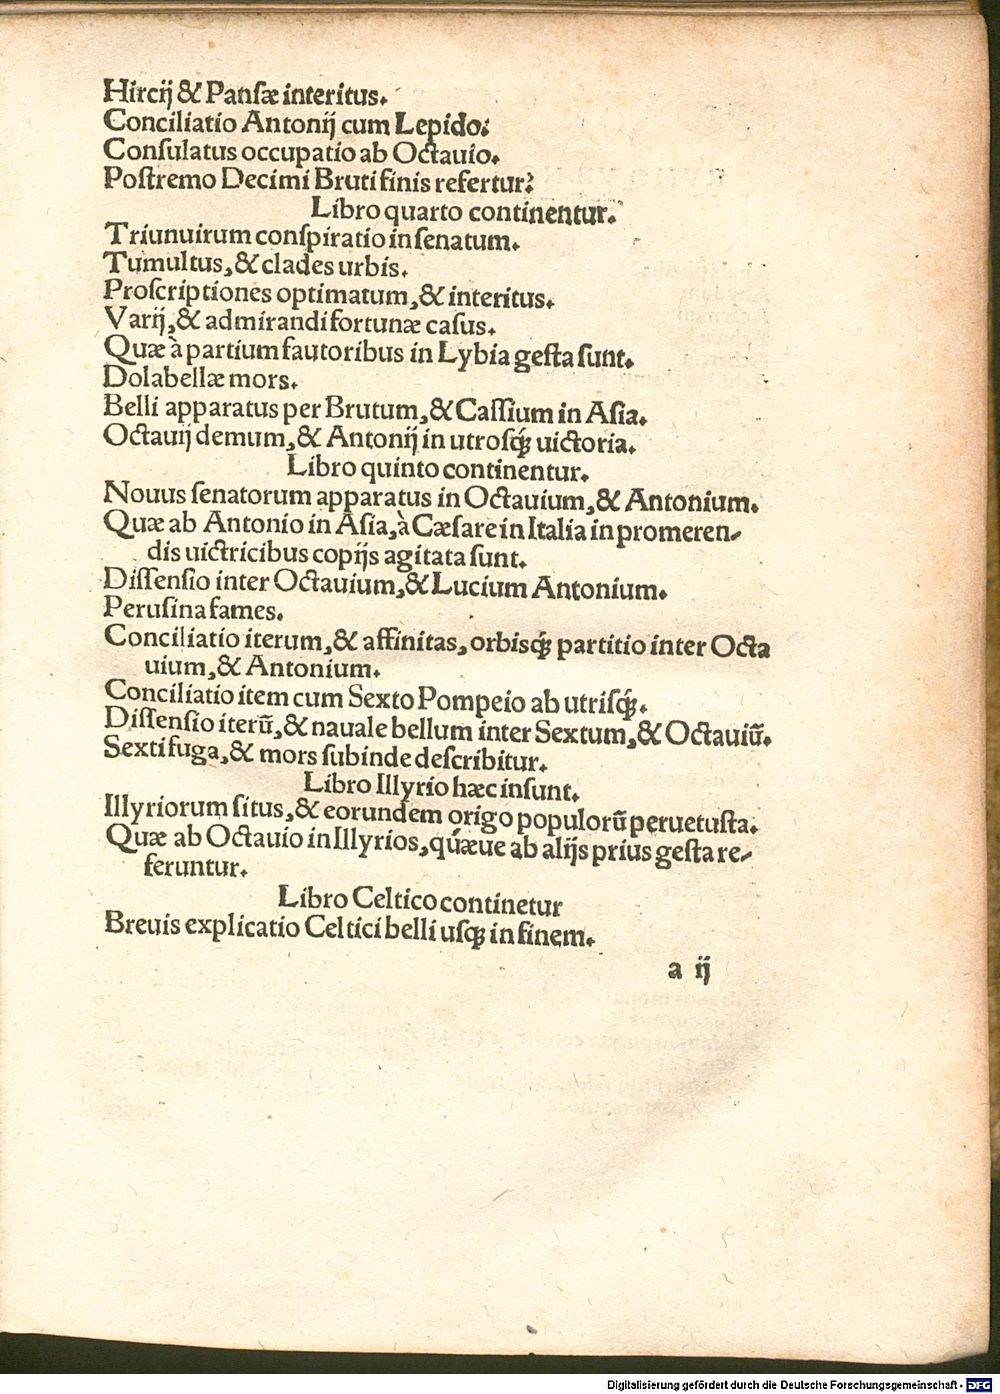 Hircij & Panſæ interitus.
Conciliatio Antonij cum Lepido:
Conſulatus occupatio ab Octauio.
Poſtremo Decimi Bruti finis refertur?
Libro quarto continentur.
Triunuirum conſpiratio in ſenatum.
Tumultus, & clades urbis.
Proſcriptiones optimatum, & interitus.
Varij, & admirandi fortunæ caſus.
Quæ à partium fautoribus in Lybia geſta ſunt.
Dolabellæ mors.
Belli apparatus per Brutum, & Caſſium in Aſia.
Octauij demum, & Antonij in utroſq́ꝫ uictoria.
Libro quinto continentur.
Nouus ſenatorum apparatus in Octauium, & Antonium.
Quæ ab Antonio in Aſia, à Cæſare in Italia in promeren-
dis uictricibus copijs agitata ſunt.
Diſſenſio inter Octauium, & Lucium Antonium.
Peruſina fames.
Conciliatio iterum, & affinitas, orbisq́ꝫ partitio inter Octa
uium, & Antonium.
Conciliatio item cum Sexto Pompeio ab utriſq́ꝫ.
Diſſenſio iterũ, & nauale bellum inter Sextum, & Octauiũ.
Sexti fuga, & mors ſubinde deſcribitur.
Libro Illyrio hæc inſunt.
Illyriorum ſitus, & eorundem origo populorũ peruetuſta.
Quæ ab Octauio in Illyrios, quǽue ab alijs prius geſta re-
feruntur.
Libro Celtico continetur
Breuis explicatio Celtici belli uſqꝫ in finem.
a ij
Digitalisierung gefördert durch die Deutsche Forschungsgemeinschaft - DFG